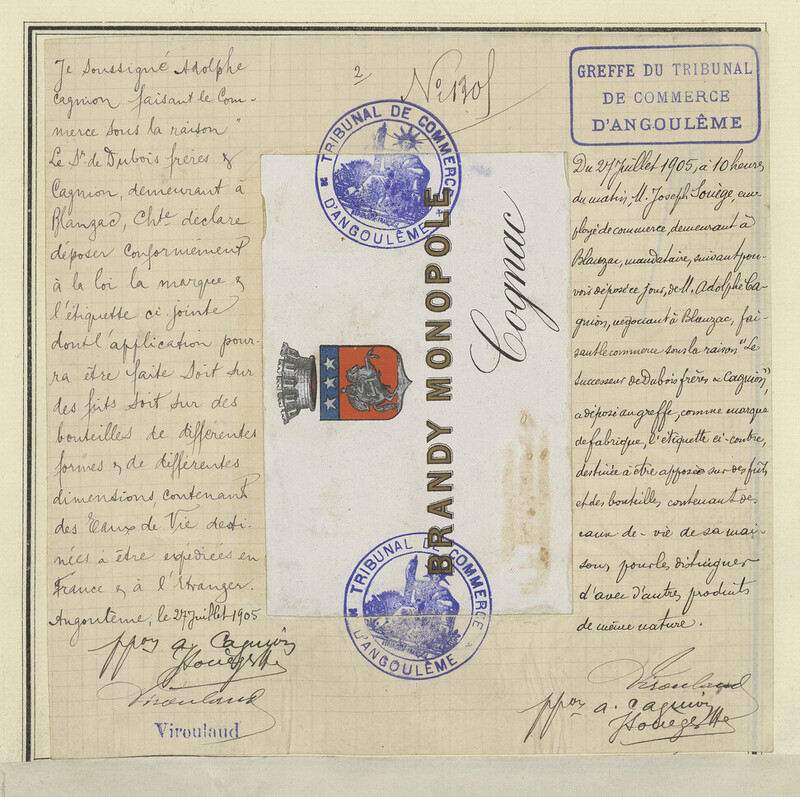 Je soussigné Adolphe
Cagnion faisant le Com-
merce sous la raison "
Le Sr de Dubois frères &
Cagnion, demeurant à
Blanzac, Chte déclare
déposer conformément
à la loi la marque &
l'étiquette ci jointe
dont l'application pour-
ra être faite soit sur
des fûts soit sur des
bouteilles de différentes
formes & de différentes
dimensions contenant
des Eaux de Vie desti-
nées à être expédiées en
France & à l'Etranger.
Angoulême, le 27 Juillet 1905
ppon a. Cagnion
Virouland
Virouland
2
No 1305
TRIBUNAL DE COMMERCE
D'ANGOULÊME
BRANDY MONOPOLE
Cognac
TRIBUNAL DE COMMERCE
D'ANGOULÊME
GREFFE DU TRIBUNAL
DE COMMERCE
D'ANGOULÊME
Du 27 Juillet 1905, à 10 heures
du matin, M. Joseph Souège, em-
ployé de commerce, demeurant à
Blanzac, mandataire, suivant pou-
voir déposé ce jour, de M. Adolphe Ca-
gnion, négociant à Blanzac, fai-
sant le commerce sous la raison "Le
successeur de Dubois frères & Cagnion",
a déposé au greffe, comme marque
de fabrique, l'étiquette ci-contre,
destinée à être apposée sur des fûts
et des bouteilles contenant des
eaux-de-vie de sa mai-
son, pour les distinguer
d'avec d'autres produits
de même nature.
Virouland
ppon a. Cagnion